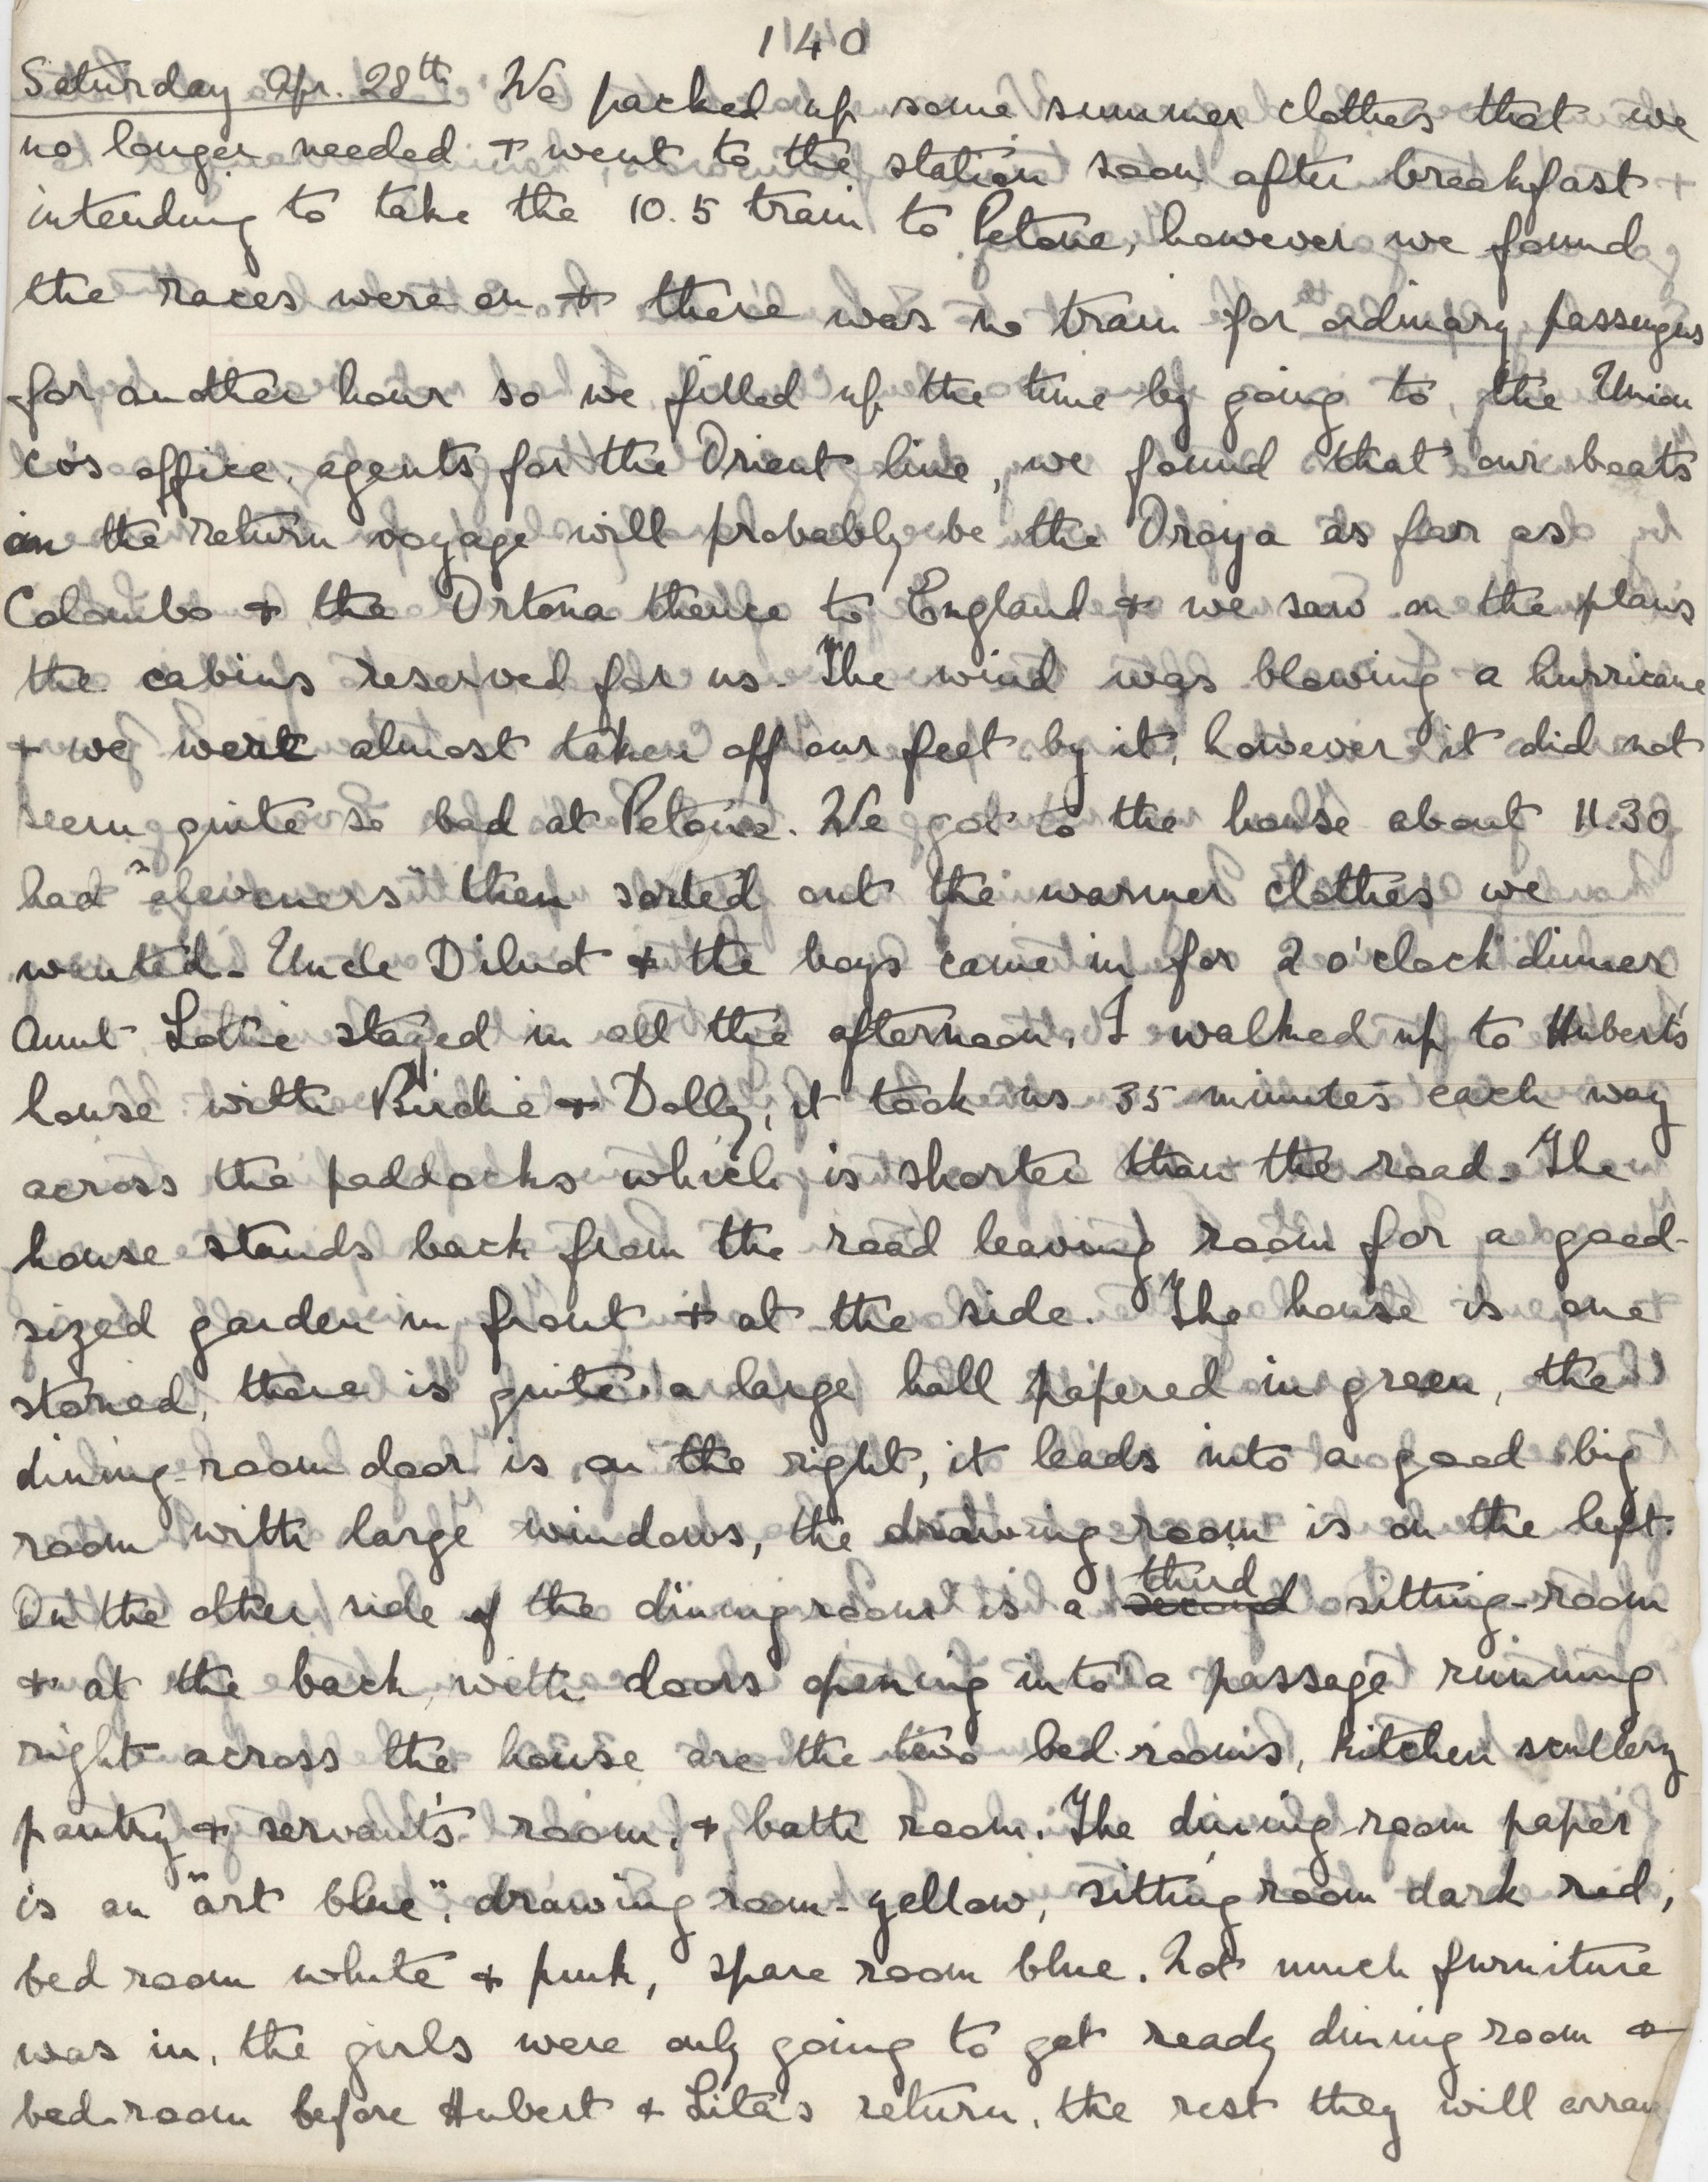 140
Saturday Apr. 28th. We packed up some summer clothes that we
no longer needed & went to the station soon after breakfast
intending to take the 10.5 train to Petone, however we found
the races were on & there was no train for ordinary passengers
for another hour so we filled up the time by going to the Union
Co's office, agents for the Orient line, we found that our boats
on the return voyage will probably be the Oroya as far as
Colombo & the Ortona thence to England & we saw on the plans
the cabins reserved for us. The wind was blowing a hurricane
& we were almost taken off our feet by it, however it did not
seem quite so bad at Petone. We got to the house about 11.30
had "eleveners" then sorted out the warmer clothes we
wanted. Uncle Dilnot & the boys came in for 2 o'clock dinner
Aunt Lottie stayed in all the afternoon. I walked up to Hubert's
house with Birdie & Dolly, it took us 35 minutes each way
across the paddocks which is shorter than the road. The
house stands back from the road leaving room for a good-
sized garden in front & at the side. The house is one
storied, there is quite a large hall papered in green, the
dining-room door is on the right, it leads into a good big
room with large windows, the drawing-room is on the left.
On the other side of the dining room is a second third sitting-room
& at the back with doors opening into a passage running
right across the house are the two bed-rooms, kitchen scullery
pantry & servant's room, & bath room. The dining-room paper
is an "art blue", drawing room - yellow, sitting room dark red,
bed room white & pink, spare room blue. Not much furniture
was in, the girls were only going to get ready dining room &
bed-room before Hubert & Lita's return, the rest they will